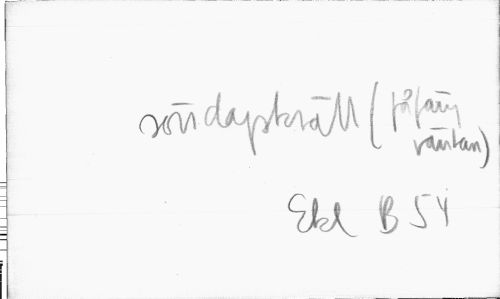 söndagskväll (på fäij
väntan)
Ekl B 54